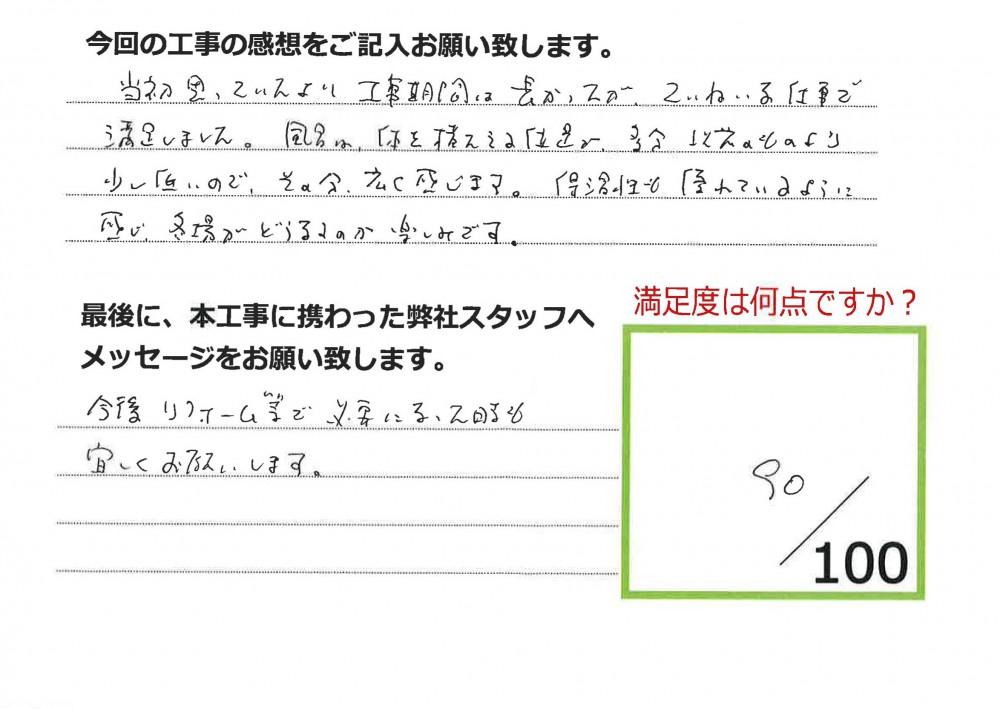 今回の工事の感想をご記入お願い致します。
当初思っていたより工事期間は長かったが、ていねいな仕事で
満足しました。風呂は、体を構える位置が、多分以前のものより
少し低いので、その分、広く感じます。保温性も優れているように
感じ、冬場がどうなるのか楽しみです。
満足度は何点ですか？
最後に、本工事に携わった弊社スタッフへ
メッセージをお願い致します。
今後リフォーム等で必要になった時も
宜しくお願いします。
90
/100